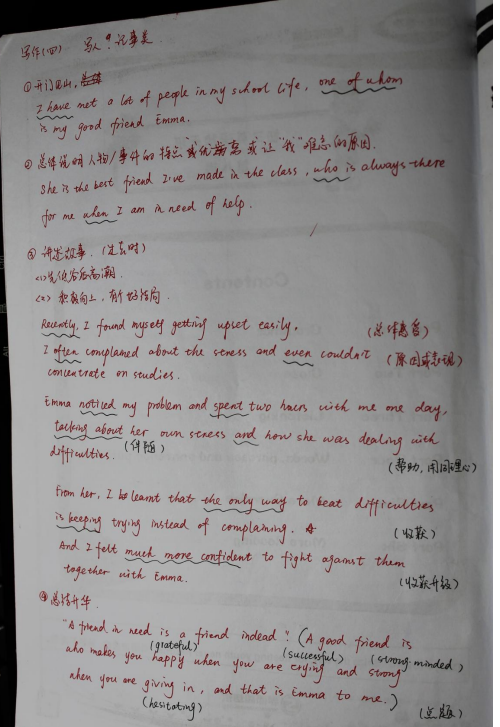 写作(四) 写人叙记事类
①开门见山,总结
I have met a lot of people in my school life, one of whom
is my good friend Emma.
②总体说明人物/事件的特点或优势高或让"我"难忘的原因.
She is the best friend I've made in the class, who is always there
for me when I am in need of help.
③讲述故事.(过去时)
<1>先低谷后高潮.
<2>积极向上,有个好结局.
Recently, I found myself getting upset easily. (总体感官)
I often complained about the stress and even couldn't (原因或表现)
concentrate on studies.
Emma noticed my problem and spent two hours with me one day,
talking about her own stress and how she was dealing with
difficulties. (伴随)
(帮助,用同理心)
From her, I learnt that the only way to beat difficulties
is keeping trying instead of complaining. (收获)
And I felt much more confident to fight against them
together with Emma. (收获升级)
④总结升华.
"A friend in need is a friend indeed". (A good friend is
(grateful) (successful) (strong-minded)
who makes you happy when you are crying and strong
when you are giving in, and that is Emma to me.)
(hesitating) (点题)